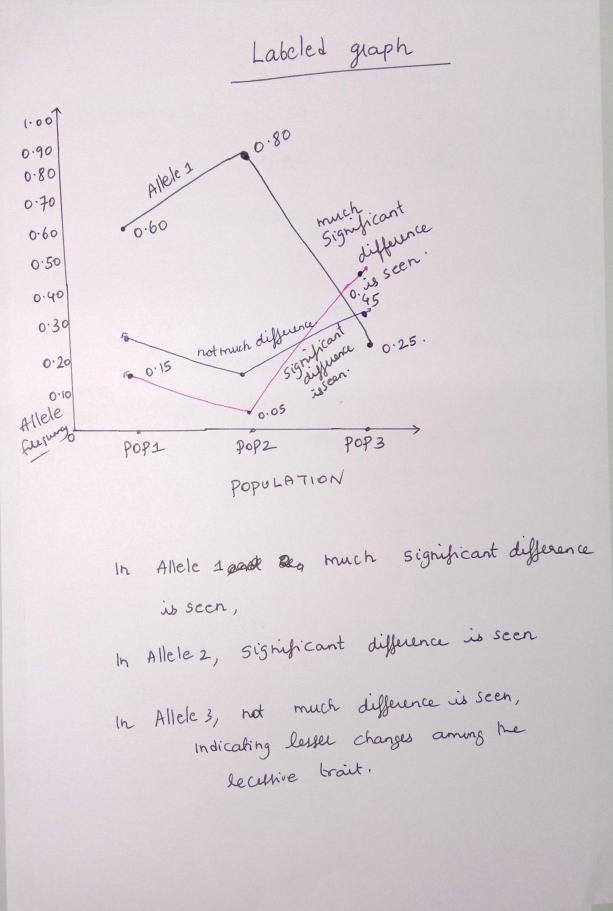 Labeled graph
1.00
0.90
0.80
0.70
0.60
0.50
0.40
0.30
0.20
0.10
0
Allele
frequency
Allele 1
0.60
0.80
much
Significant
difference
is seen.
0.45
not much difference
Significant
difference
is seen.
0.15
0.05
0.25.
POP1 POP2 POP3
POPULATION
In Allele 1 much significant difference
is seen,
In Allele 2, Significant difference is seen
In Allele 3, not much difference is seen,
Indicating lesser changes among the
recessive trait.